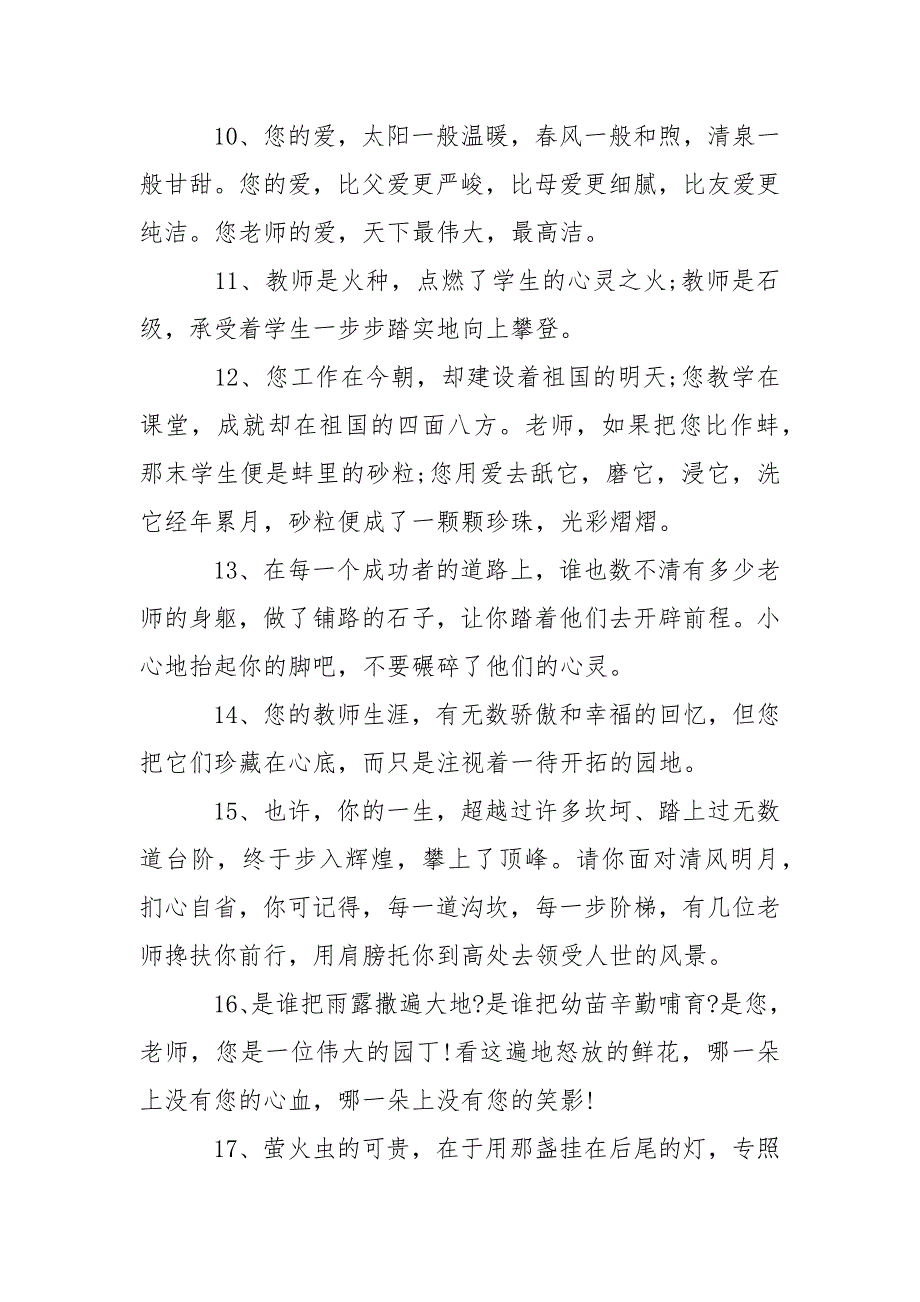 10、您的爱，太阳一般温暖，春风一般和煦，清泉一
般甘甜。您的爱，比父爱更严峻，比母爱更细腻，比友爱更
纯洁。您老师的爱，天下最伟大，最高洁。
11、教师是火种，点燃了学生的心灵之火;教师是石
级，承受着学生一步步踏实地向上攀登。
12、您工作在今朝，却建设着祖国的明天;您教学在
课堂，成就却在祖国的四面八方。老师，如果把您比作蚌，
那末学生便是蚌里的砂粒;您用爱去舐它，磨它，浸它，洗
它经年累月，砂粒便成了一颗颗珍珠，光彩熠熠。
13、在每一个成功者的道路上，谁也数不清有多少老
师的身躯，做了铺路的石子，让你踏着他们去开辟前程。小
心地抬起你的脚吧，不要碾碎了他们的心灵。
14、您的教师生涯，有无数骄傲和幸福的回忆，但您
把它们珍藏在心底，而只是注视着一待开拓的园地。
15、也许，你的一生，超越过许多坎坷、踏上过无数
道台阶，终于步入辉煌，攀上了顶峰。请你面对清风明月，
扪心自省，你可记得，每一道沟坎，每一步阶梯，有几位老
师搀扶你前行，用肩膀托你到高处去领受人世的风景。
16、是谁把雨露撒遍大地?是谁把幼苗辛勤哺育?是您，
老师，您是一位伟大的园丁!看这遍地怒放的鲜花，哪一朵
上没有您的心血，哪一朵上没有您的笑影!
17、萤火虫的可贵，在于用那盏挂在后尾的灯，专照